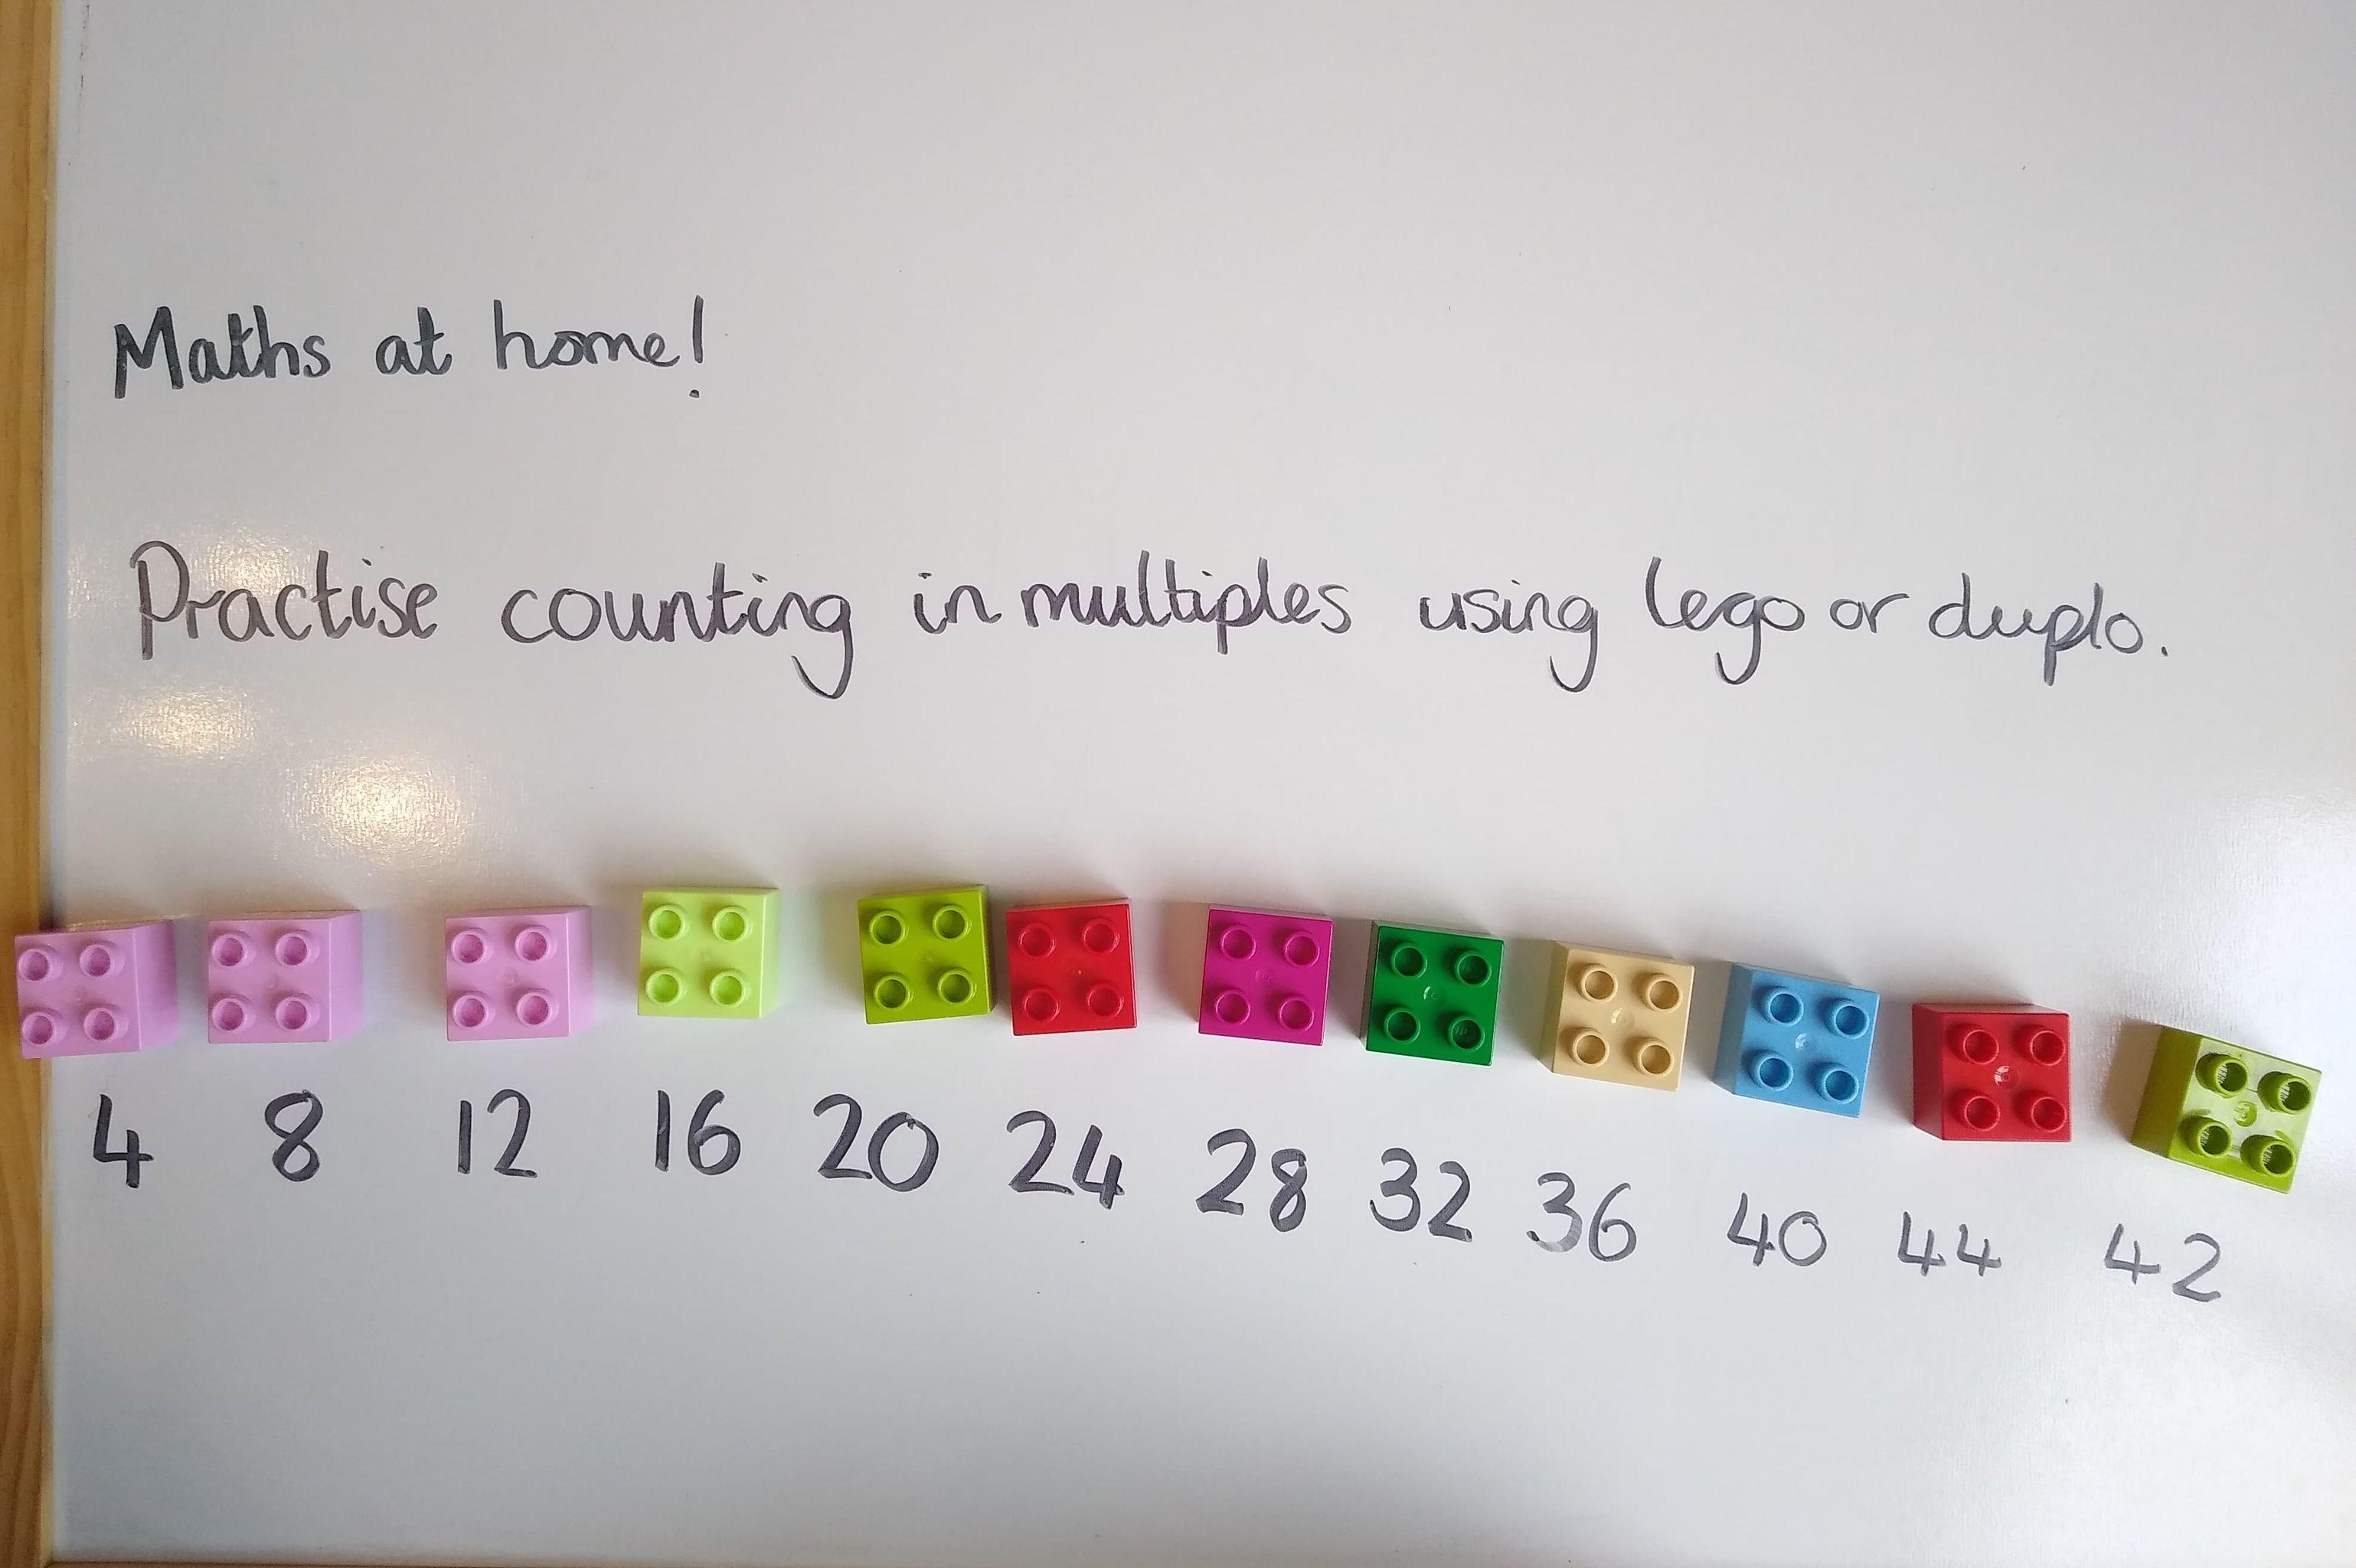 Maths at home!
Practise counting in multiples using lego or duplo.
4 8 12 16 20 24 28 32 36 40 44 42